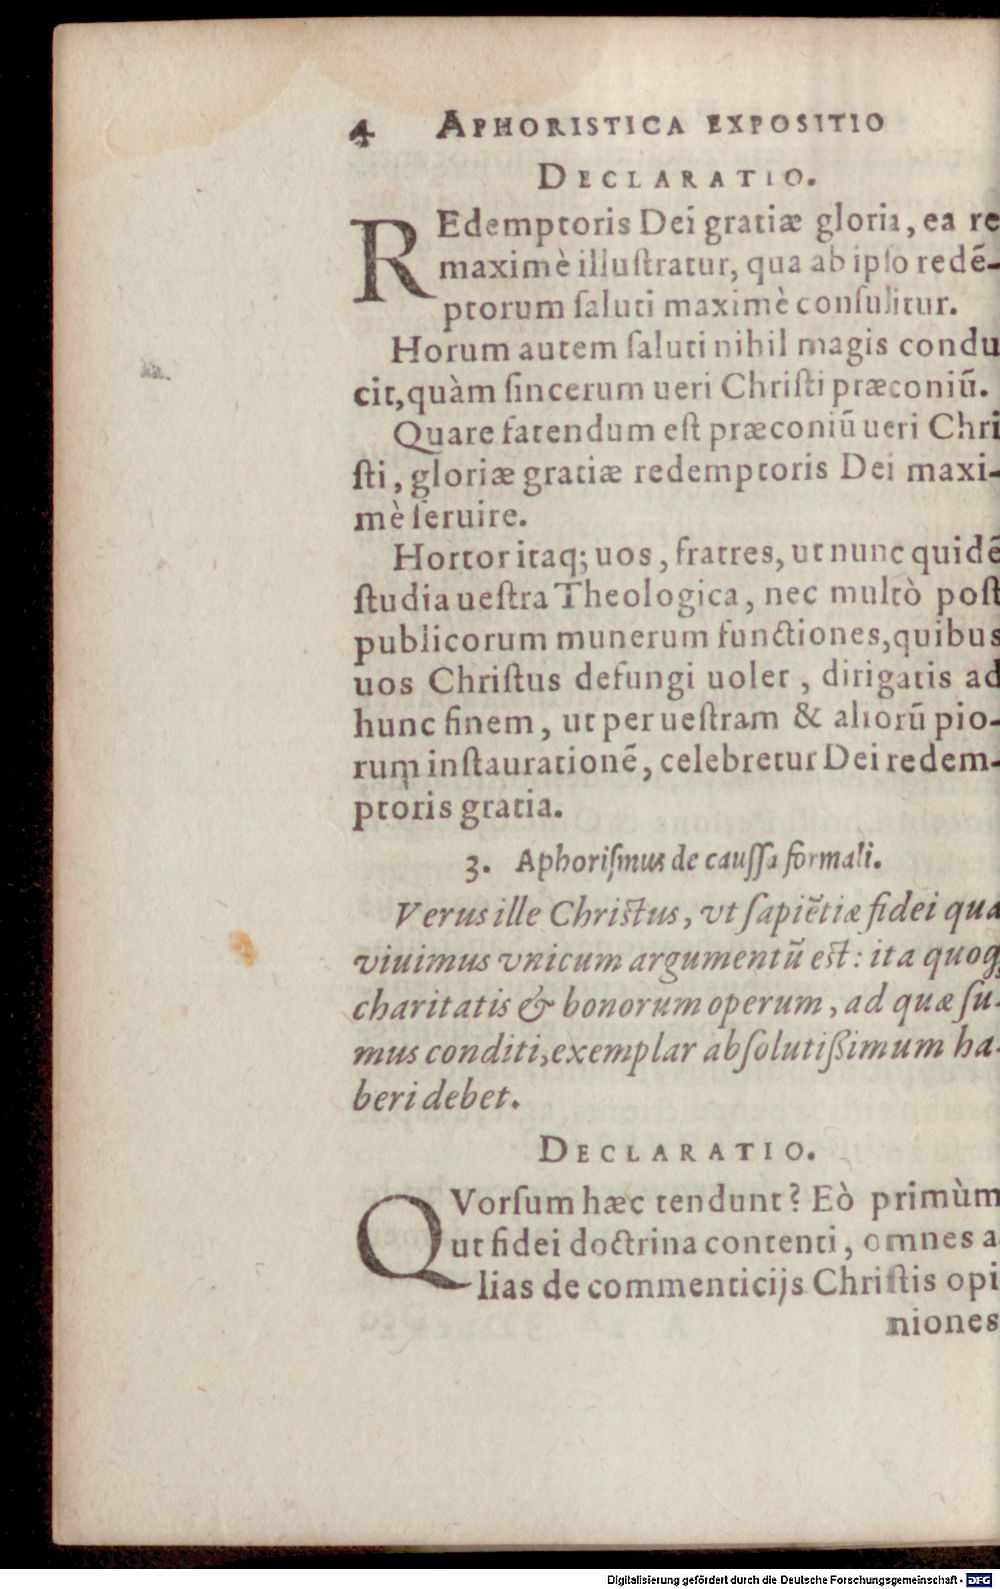 4 APHORISTICA EXPOSITIO
DECLARATIO.
REdemptoris Dei gratiæ gloria, ea re
maximè illuſtratur, qua ab ipſo redē-
ptorum ſaluti maximè conſulitur.
Horum autem ſaluti nihil magis condu
cit, quàm ſincerum ueri Chriſti præconiū.
Quare fatendum eſt præconiū ueri Chri
ſti, gloriæ gratiæ redemptoris Dei maxi-
mè ſeruire.
Hortor itaq; uos, fratres, ut nunc quidē
ſtudia ueſtra Theologica, nec multò poſt
publicorum munerum functiones, quibus
uos Chriſtus defungi uolet, dirigatis ad
hunc finem, ut per ueſtram & aliorū pio-
rum inſtaurationē, celebretur Dei redem-
ptoris gratia.
3. Aphoriſmus de cauſſa formali.
Verus ille Chriſtus, vt ſapiētiæ fidei qua
viuimus vnicum argumentū eſt: ita quoq;
charitatis & bonorum operum, ad quæ ſu-
mus conditi, exemplar abſolutißimum ha-
beri debet.
DECLARATIO.
QVorſum hæc tendunt? Eò primùm
ut fidei doctrina contenti, omnes a
lias de commenticijs Chriſtis opi
niones
Digitalisierung gefördert durch die Deutsche Forschungsgemeinschaft - DFG